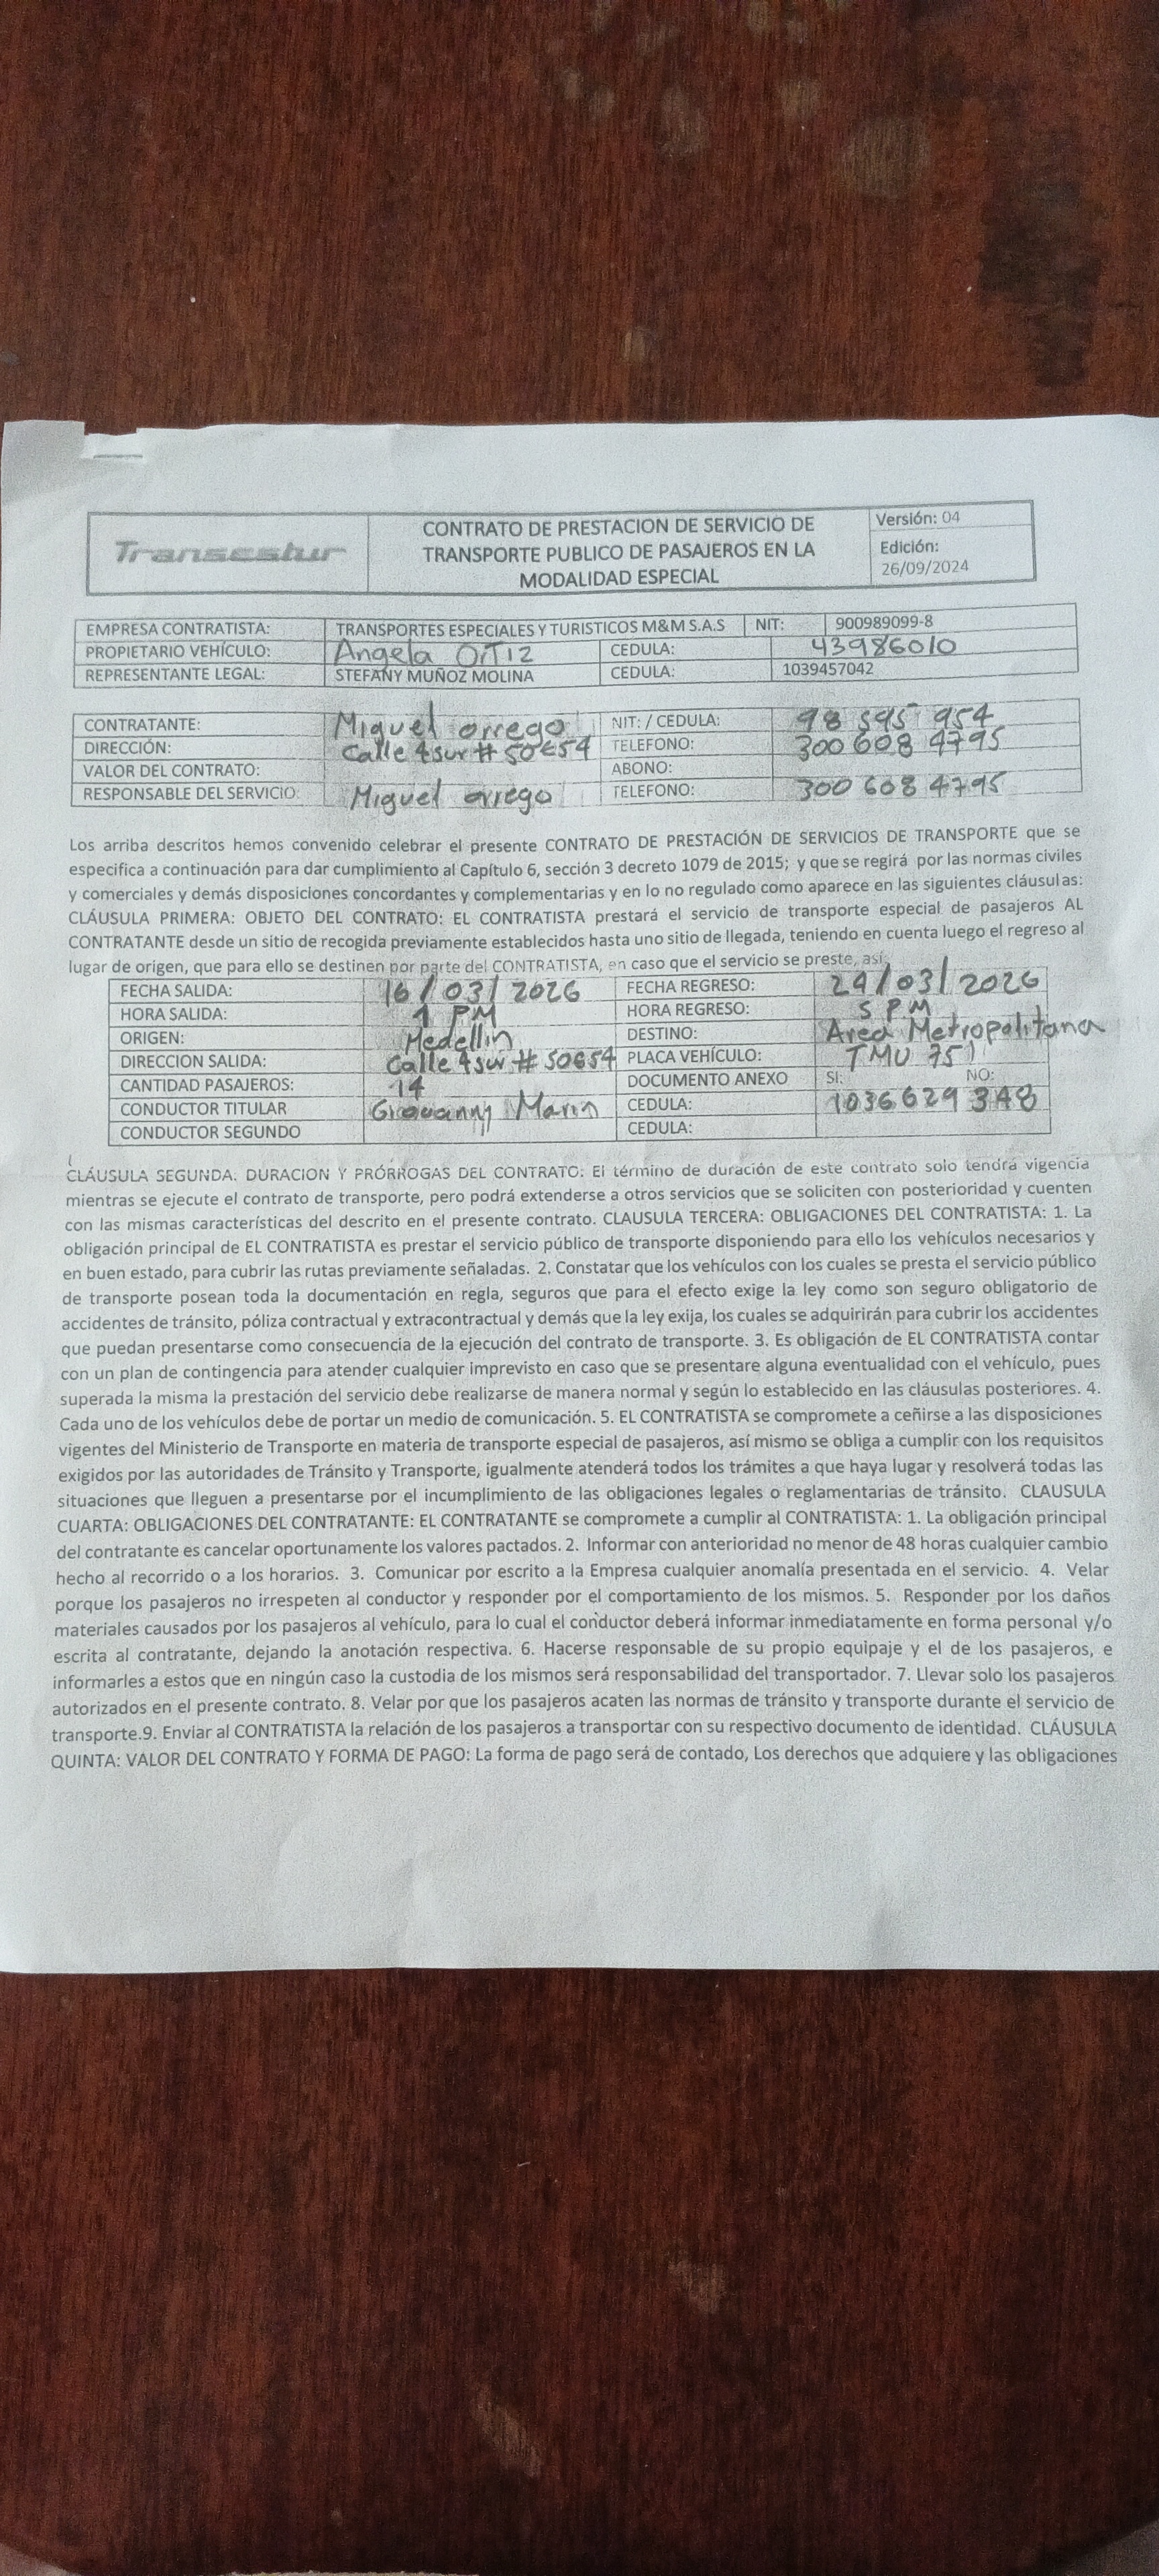 Transestur
CONTRATO DE PRESTACION DE SERVICIO DE
TRANSPORTE PUBLICO DE PASAJEROS EN LA
MODALIDAD ESPECIAL
Versión: 04
Edición:
26/09/2024
EMPRESA CONTRATISTA: TRANSPORTES ESPECIALES Y TURISTICOS M&M S.A.S NIT: 900989099-8
PROPIETARIO VEHÍCULO: Angela OrTiz CEDULA: 43986010
REPRESENTANTE LEGAL: STEFANY MUÑOZ MOLINA CEDULA: 1039457042
CONTRATANTE: Miguel orrego NIT: / CEDULA: 98 595 954
DIRECCIÓN: Calle 4 sur # 50E54 TELEFONO: 300 608 4795
VALOR DEL CONTRATO: ABONO:
RESPONSABLE DEL SERVICIO: Miguel orrego TELEFONO: 300 608 4795
Los arriba descritos hemos convenido celebrar el presente CONTRATO DE PRESTACIÓN DE SERVICIOS DE TRANSPORTE que se
especifica a continuación para dar cumplimiento al Capítulo 6, sección 3 decreto 1079 de 2015; y que se regirá por las normas civiles
y comerciales y demás disposiciones concordantes y complementarias y en lo no regulado como aparece en las siguientes cláusulas:
CLÁUSULA PRIMERA: OBJETO DEL CONTRATO: EL CONTRATISTA prestará el servicio de transporte especial de pasajeros AL
CONTRATANTE desde un sitio de recogida previamente establecidos hasta uno sitio de llegada, teniendo en cuenta luego el regreso al
lugar de origen, que para ello se destinen por parte del CONTRATISTA, en caso que el servicio se preste, así:
FECHA SALIDA: 16/03/2026 FECHA REGRESO: 29/03/2026
HORA SALIDA: 1 PM HORA REGRESO: 5 PM
ORIGEN: Medellin DESTINO: Area Metropolitana
DIRECCION SALIDA: Calle 4 sur # 50E54 PLACA VEHÍCULO: TMU 751
CANTIDAD PASAJEROS: 14 DOCUMENTO ANEXO SI: NO:
CONDUCTOR TITULAR Giovanny Marin CEDULA: 1036629348
CONDUCTOR SEGUNDO CEDULA:
CLÁUSULA SEGUNDA: DURACION Y PRÓRROGAS DEL CONTRATO: El término de duración de este contrato solo tendrá vigencia
mientras se ejecute el contrato de transporte, pero podrá extenderse a otros servicios que se soliciten con posterioridad y cuenten
con las mismas características del descrito en el presente contrato. CLAUSULA TERCERA: OBLIGACIONES DEL CONTRATISTA: 1. La
obligación principal de EL CONTRATISTA es prestar el servicio público de transporte disponiendo para ello los vehículos necesarios y
en buen estado, para cubrir las rutas previamente señaladas. 2. Constatar que los vehículos con los cuales se presta el servicio público
de transporte posean toda la documentación en regla, seguros que para el efecto exige la ley como son seguro obligatorio de
accidentes de tránsito, póliza contractual y extracontractual y demás que la ley exija, los cuales se adquirirán para cubrir los accidentes
que puedan presentarse como consecuencia de la ejecución del contrato de transporte. 3. Es obligación de EL CONTRATISTA contar
con un plan de contingencia para atender cualquier imprevisto en caso que se presentare alguna eventualidad con el vehículo, pues
superada la misma la prestación del servicio debe realizarse de manera normal y según lo establecido en las cláusulas posteriores. 4.
Cada uno de los vehículos debe de portar un medio de comunicación. 5. EL CONTRATISTA se compromete a ceñirse a las disposiciones
vigentes del Ministerio de Transporte en materia de transporte especial de pasajeros, así mismo se obliga a cumplir con los requisitos
exigidos por las autoridades de Tránsito y Transporte, igualmente atenderá todos los trámites a que haya lugar y resolverá todas las
situaciones que lleguen a presentarse por el incumplimiento de las obligaciones legales o reglamentarias de tránsito. CLAUSULA
CUARTA: OBLIGACIONES DEL CONTRATANTE: EL CONTRATANTE se compromete a cumplir al CONTRATISTA: 1. La obligación principal
del contratante es cancelar oportunamente los valores pactados. 2. Informar con anterioridad no menor de 48 horas cualquier cambio
hecho al recorrido o a los horarios. 3. Comunicar por escrito a la Empresa cualquier anomalía presentada en el servicio. 4. Velar
porque los pasajeros no irrespeten al conductor y responder por el comportamiento de los mismos. 5. Responder por los daños
materiales causados por los pasajeros al vehículo, para lo cual el conductor deberá informar inmediatamente en forma personal y/o
escrita al contratante, dejando la anotación respectiva. 6. Hacerse responsable de su propio equipaje y el de los pasajeros, e
informarles a estos que en ningún caso la custodia de los mismos será responsabilidad del transportador. 7. Llevar solo los pasajeros
autorizados en el presente contrato. 8. Velar por que los pasajeros acaten las normas de tránsito y transporte durante el servicio de
transporte.9. Enviar al CONTRATISTA la relación de los pasajeros a transportar con su respectivo documento de identidad. CLÁUSULA
QUINTA: VALOR DEL CONTRATO Y FORMA DE PAGO: La forma de pago será de contado, Los derechos que adquiere y las obligaciones